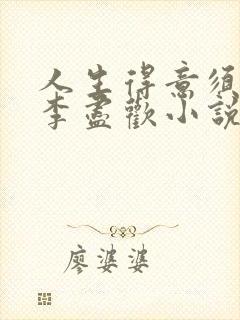 人生得意須
李盡歡小說
廖婆婆